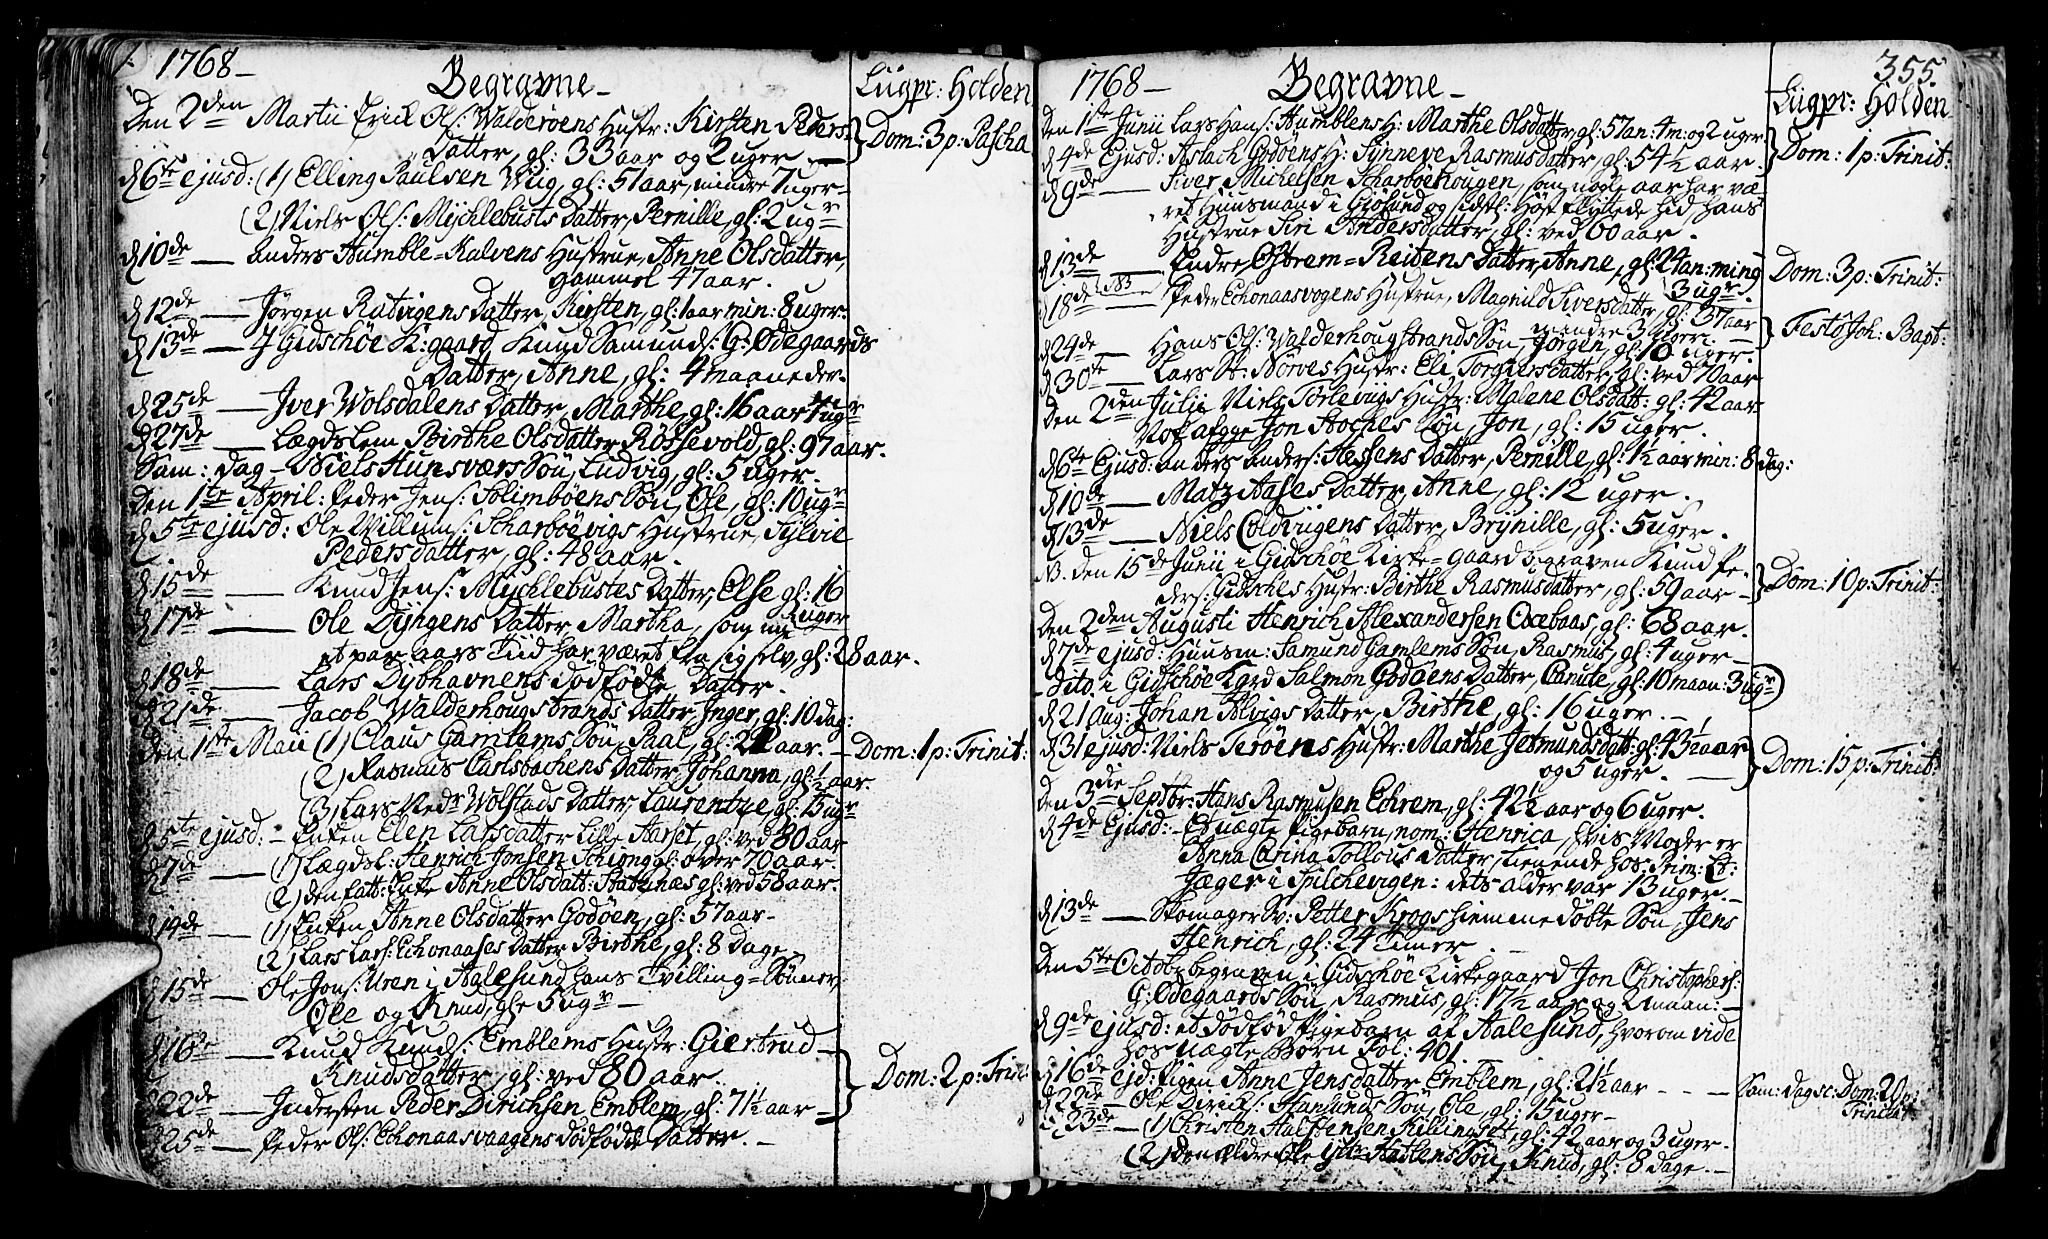 1768 -
Begravne -
Liigpr: Holden
Den 2den Martii Erick Ols: Walderøens Hustr: Kirsten Peders-
Datter, gl: 33 aar og 2 uger. —
Dom: 3 p: Pascha
d 6te ejusd: (1) Elling Paulsen Wiig, gl: 51 aar, mindre 7 uger -
(2) Niels Ols: Mychlebusts Datter, Pernille, gl: 2 ugr
d 10de — Anders Humble-Kalvens Hustrue, Anne Olsdatter,
Gammel 47 aar.
d 12de — Jørgen Rutvigens Datter, Kirsten, gl: 1 aar min: 8 uger.
d 13de — I Gidschöe K:gaard Knud Samunds: G: Ødegaards
Datter, Anne, gl: 4 maaneder.
d 25de — Iver Wolsdalens Datter, Marthe, gl: 16 aar 7 ugr
d 27de — Lægdslem Birthe Olsdatter Røssevold, gl: 97 aar.
Sam: dag - Niels Hunsværs Søn, Ludvig, gl: 5 uger.
Den 1te April: Peder Jens: Solimböens Søn, Ole, gl: 10 ugr
d 5te ejusd: Ole Willums: Scharbövigs Hustrue, Sylvie
Pedersdatter, gl: 48 aar.
d 15de — Knud Jens: Mychlebustes Datter, Else gl: 16
uger
d 17de — Ole Dyngens Datter Martha, som nu
et par aars Tiid har været fra sig selv, gl: 28 aar.
d 18de — Lars Dybhavnens dödfödte Datter.
d 21de — Jacob Walderhougstrands Datter, Inger, gl: 10 dag:
Den 1te Maii (1) Claus Gamlems Søn, Paal, gl: 21 aar. -
Dom: 1 p: Trinit:
(2) Rasmus Carlsbachens Datter, Johanna, gl: ½ aar.
(3) Lars Nedr Wolstads Datter, Laurentze, gl: 15 ugr
d 5te ejusd: - Enken Elen Larsdatter Lille Aarset, gl: ved 80 aar
d 7de — (1) Lægdsl: Henrich Jonsen Schiong gl: over 70 aar.
(2) den fatt: Enke Anne Olsdatt: Slatznæs gl: ved 58 aar.
d 19de — (1) Enken Anne Olsdatter Godöen, gl: 57 aar -
(2) Lars Lars: Echonaases Datter Birthe, gl: 8 Dage
d 15de — Ole Jons: Uren i Aalesund hans Tvilling-Sønner,
Ole og Knud, gle 5 ugr -
d 16de — Knud Knuds: Emblems Hustr: Giertrud
Knudsdatter, gl: ved 80 aar.
Dom: 2 p: Trin:
d 22de — Indersten Peder Dirichsen Emblem, gl: 71½ aar -
d 25de — Peder Ols: Echonaasvaagens dödfödde Datter. -
1768 -
Begravne -
355.
Liigpr: Holden
Den 1ste Junii Lars Hans: Humblens H: Marthe Olsdatter, gl: 57 an: 4 m: og 2 uger
d 4de Ejusd: Aslach Godöens H: Synneve Rasmusdatter, gl: 54½ aar.
Dom: 1 p: Trinit:
d 9de — Siver Michelsen Scharböehougen, som nogle aar har væ-
ret Huusmand i Gjösund og sidstl: Høst flyttede hid, hans
Hustrue Siri Andersdatter, gl: ved 60 aar.
d 13de — Endre Østrem-Reitens Datter, Anne, gl: 24 an: min 9
3 ugr.
Dom: 3 p: Trinit:
d 18de NB — Peder Echonaasvogens Hustrue, Magnild Siversdatter, gl: 37 aar
mindre 3 uger. -
Festo Joh: Bapt:
d 24de — Hans Ols: Walderhougstrands Søn - Jørgen, gl: 10 uger.
d 30te — Lars St: Nørves Hustr: Eli Torgiersdatter, gl: ved 70 aar
Den 2den Julii Niels Torlevigs Hustr: Malene Olsdatt: gl: 42 aar.
Jon, gl: 15 uger.
d 6te Ejusd: Anders Anders: Hessens Datter, Pernille, gl: 1½ aar min: 8 dag:
d 10de — Matz Aases Datter, Anne, gl: 12 uger.
d 13de — Niels Coldviigens Datter, Brynille, gl: 5 uger.
NB. Den 15de Junii i Gidschöe Kirke-gaard begraven Knud Pe-
ders: Gibschés Hustr: Birthe Rasmusdatter, gl: 59 aar -
Dom: 10 p: Trinit:
Den 2den Augusti Henrich Alexandersen Oxebaas, gl: 68 aar.
d 7de ejusd: Huusm: Samund Gamlems Søn, Rasmus, gl: 4 uger -
- Dito. i Gidschöe Kgrd Salmon Godöens Datter, Canute, gl: 10 maan: 3 ugr
d 21 Aug: Johan Alvigs Datter, Birthe, gl: 16 uger. -
d 31 ejusd: Niels Terøens Hustr: Marthe Jetmundsdatt: gl: 43½ aar
og 5 uger. —
Dom: 15 p: Trinit:
Den 3die Septbr: Hans Rasmusen Echrem, gl: 42½ aar og 6 uger.
d 4de Ejusd: - Et uægte Pigebarn, nom: Henrica, hvis Moder er
Anna Carina Follous datter, tienende hos Prim: Lt:
Jæger i Spilchevigen: dets alder var 13 uger. -
d 13de — Skomager Sv: Petter Krogs hiemmedöbte Søn, Jens
Henrich, gl: 24 Timer. -
Den 5te Octobr begraven i Gidschöe Kirkegaard Jon Christophers:
G: Ødegaards Søn, Rasmus, gl: 17½ aar og 2 maan: -
d 9de ejusd: et dödfød Pigebarn af Aalesund, hvorom vide
hos uægte Børn Fol: 401.
d 16de ejd: Pigen Anne Jensdatter Emblem, gl: 21½ aar - - -
Sam: dag sc: Dom: 20 p:
Trinitat:
d 22de — Ole Dirichs: Hansunds Søn, Ole, gl: 15 uger -
d 23de — (1) Christen Halstensen Killingset, gl: 42 aar og 3 uger. -
(2) Den ældre Ole Ytr-Hathens Søn, Knud, gl: 8 dage. -